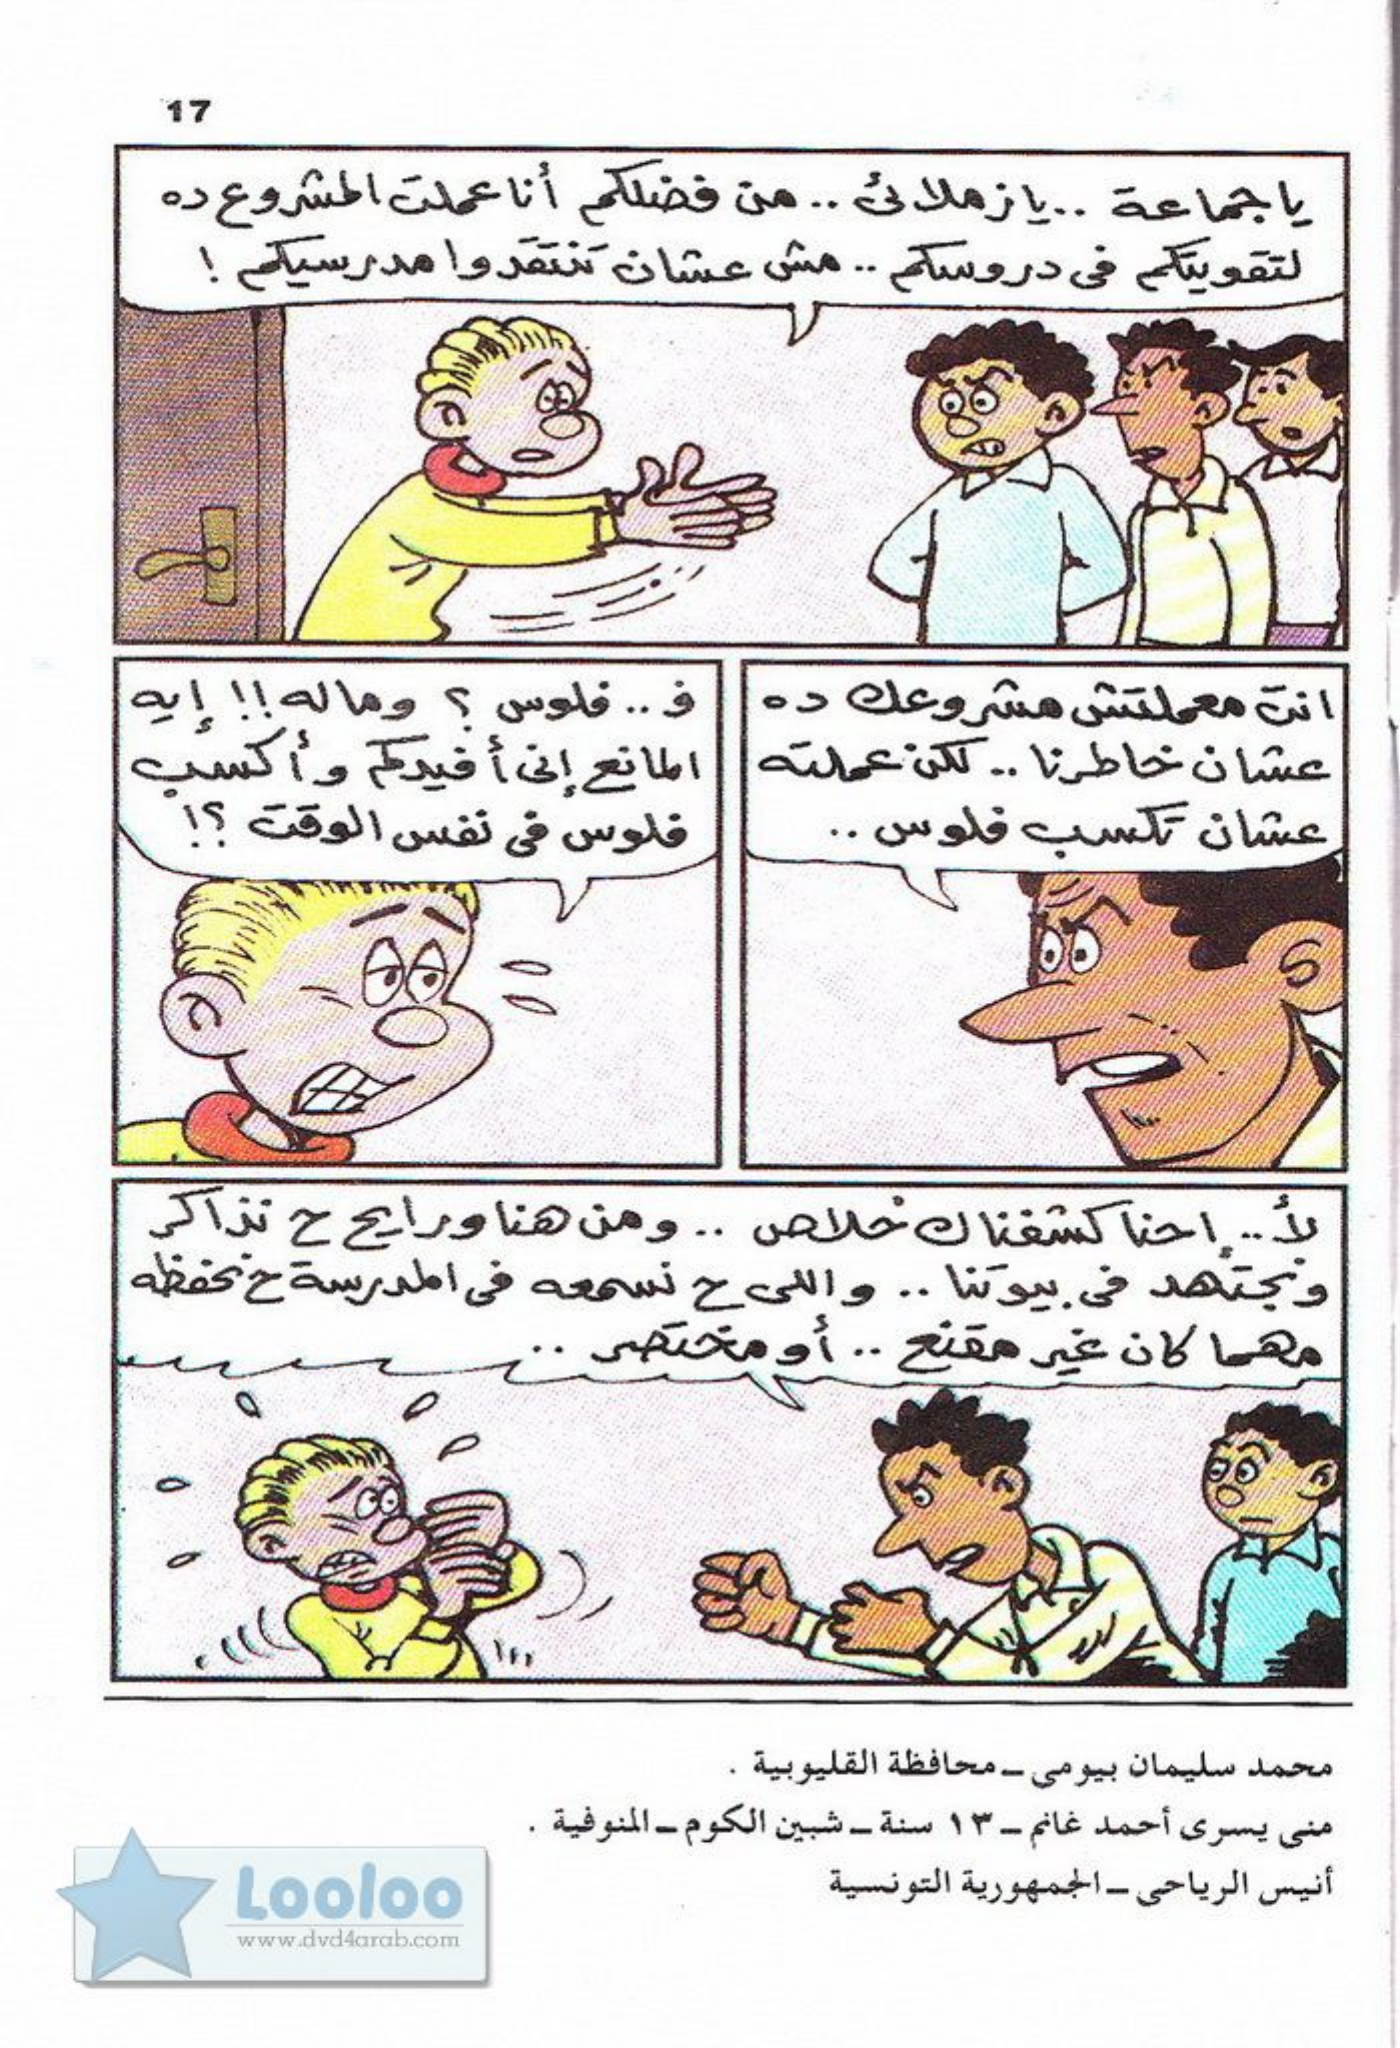 17
يا جماعة .. يا زملائى .. من فضلكم أنا عملت المشروع ده
لتقويتكم فى دروسكم .. مش عشان تنتقدوا مدرسيكم !
انت معملتش مشروعك ده
عشان خاطرنا .. لكن عملته
عشان تكسب فلوس ..
ف .. فلوس ؟ وماله !! إيه
المانع إنى أفيدكم وأكسب
فلوس فى نفس الوقت ؟!
لأ .. إحنا كشفناك خلاص .. ومن هنا ورايح ح نذاكر
ونجتهد فى بيوتنا .. واللى ح نسمعه فى المدرسة ح نحفظه
مهما كان غير مقنع .. أو مختصر ..
محمد سليمان بيومى ــ محافظة القليوبية .
منى يسرى أحمد غانم ــ ١٣ سنة ــ شبين الكوم ــ المنوفية .
أنيس الرياحى ــ الجمهورية التونسية
Looloo
www.dvd4arab.com